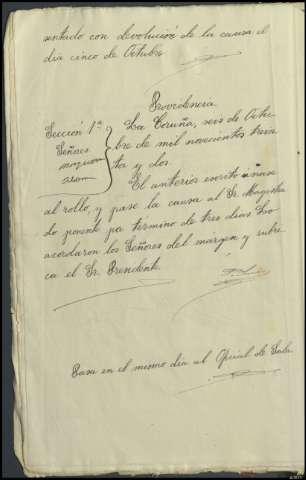 sentado con devolución de la causa el
día cinco de Octubre
Providencia
Sección 1ª
Señores
La Coruña, seis de Octu-
bre de mil novecientos trein-
ta y dos.
El anterior escrito únase
al rollo, y pase la causa al Sr. Magistra
do ponente por término de tres días Lo
acordaron los Señores del margen y rubri-
ca el Sr. Presidente.
Pasa en el mismo día al Oficial de Sala